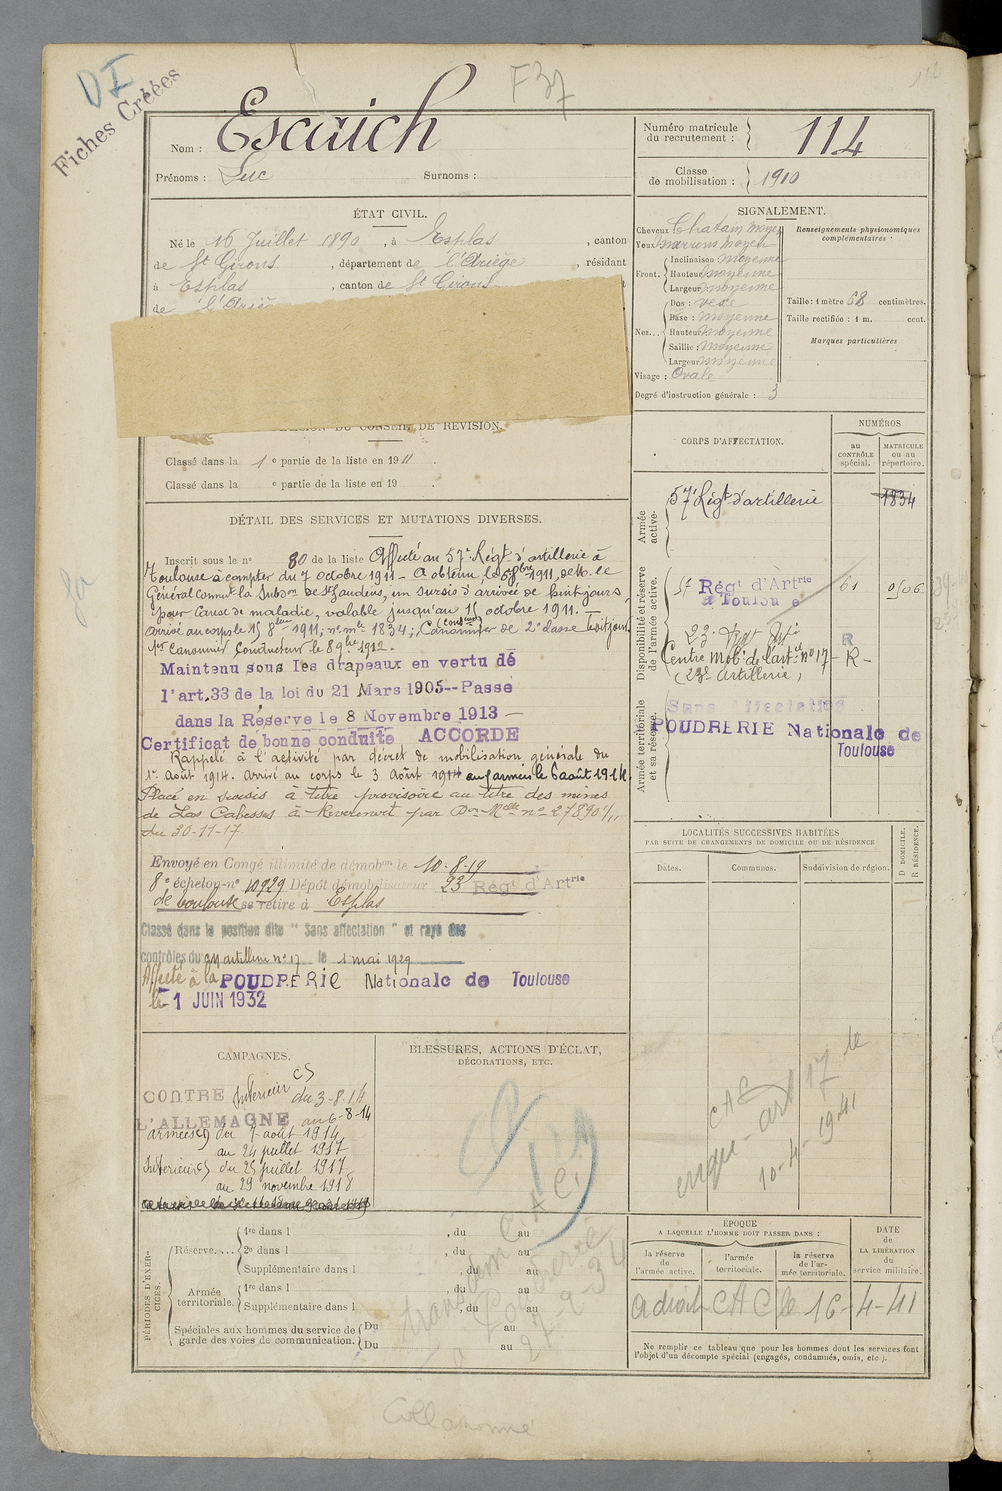 DI
Fiches Créées
F37
114
Nom : Escaich
Prénoms : Luc Surnoms :
Numéro matricule du recrutement : 114
Classe de mobilisation : 1910
ÉTAT CIVIL.
Né le 16 Juillet 1890, à Esplas, canton
de St Girons, département de l'Ariège, résidant
à Esplas, canton de St Girons
de l'Ariè
DU CONSEIL DE RÉVISION.
Classé dans la 1e partie de la liste en 1911.
Classé dans la e partie de la liste en 19 .
SIGNALEMENT.
Cheveux Chatain moyen
Yeux marrons moyen
Front. Inclinaison moyenne
Hauteur moyenne
Largeur moyenne
Nez... Dos : vexe
Base : moyenne
Hauteur moyenne
Saillie : moyenne
Largeur moyenne
Visage : Ovale
Degré d'instruction générale : 3
Renseignements physionomiques complémentaires :
Taille : 1 mètre 68 centimètres.
Taille rectifiée : 1 m. cent.
Marques particulières
DÉTAIL DES SERVICES ET MUTATIONS DIVERSES.
Inscrit sous le n° 80 de la liste Affecté au 57e Régt d'artillerie à
Toulouse à compter du 7 octobre 1911 - A obtenu le 8bre 1911, de M. le
Général Commt la Subdon de St Gaudens, un sursis d'arrivée de huit jours,
pour cause de maladie, valable jusqu'au 15 octobre 1911.
Arrivé au corps le 15 8bre 1911; n° mle 1834; Canonnier (conduct) de 2e classe
1er Canonnier Conducteur le 8 9bre 1912.
Maintenu sous les drapeaux en vertu de
l'art.33 de la loi du 21 Mars 1905--Passé
dans la Réserve le 8 Novembre 1913 -
Certificat de bonne conduite ACCORDÉ
Rappelé à l'activité par décret de mobilisation générale du
1er Août 1914. Arrivé au corps le 3 Août 1914 aux armées le 6 août 1914.
Placé en sursis à titre provisoire au titre des mines
de Las Cabesses à Rivèrenert par Don Mlle n° 27890 1/11
du 30-11-17
Envoyé en Congé illimité de démobon le 10-8-19
8e échelon n° 10929 Dépôt démobilisateur 23 Régt d'Artrie
de Toulouse se retire à Esplas
Classé dans la position dite "Sans affectation" et rayé des
contrôles du artillerie n° 17 le 1 mai 1929
Affecté à la POUDRERIE Nationale de Toulouse
le 1 JUIN 1932
CORPS D'AFFECTATION.
NUMÉROS
au CONTRÔLE spécial.
MATRICULE ou au répertoire.
Armée active.
57e Régt d'artillerie 1834
Disponibilité et réserve de l'armée active.
57 Régt d'Artrie à Toulouse 61
Centre mob. de l'art. n° 17 - R -
(23e artillerie)
Armée territoriale et sa réserve.
Sans affectation
POUDRERIE Nationale de
Toulouse
LOCALITÉS SUCCESSIVES HABITÉES
PAR SUITE DE CHANGEMENTS DE DOMICILE OU DE RÉSIDENCE
Dates.
Communes.
Subdivision de région.
D DOMICILE.
R RÉSIDENCE.
CAMPAGNES.
CONTRE L'ALLEMAGNE
Intérieur CS du 3-8-14
au 6-8-14
armées CD du 7 août 1914
au 24 juillet 1917
Intérieur CS du 25 juillet 1917
au 29 novembre 1918
BLESSURES, ACTIONS D'ÉCLAT,
DÉCORATIONS, ETC.
CAC
10-4-1941
PÉRIODES D'EXERCICES.
Réserve.... 1re dans l , du au
2e dans l , du au
Supplémentaire dans l , du au
Armée territoriale. 1re dans l , du au
Supplémentaire dans l , du au
Spéciales aux hommes du service de garde des voies de communication. Du au
Du au
ÉPOQUE
A LAQUELLE L'HOMME DOIT PASSER DANS :
la réserve de l'armée active.
l'armée territoriale.
la réserve de l'armée territoriale.
DATE de LA LIBÉRATION du service militaire.
a droit CAC le 16-4-41
Ne remplir ce tableau que pour les hommes dont les services font
l'objet d'un décompte spécial (engagés, condamnés, omis, etc.).